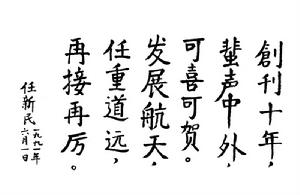 創刊十年，
蜚声中外，
可喜可贺。
发展航天，
任重道远，
再接再厉。
任新民
一九九一年
六月一日